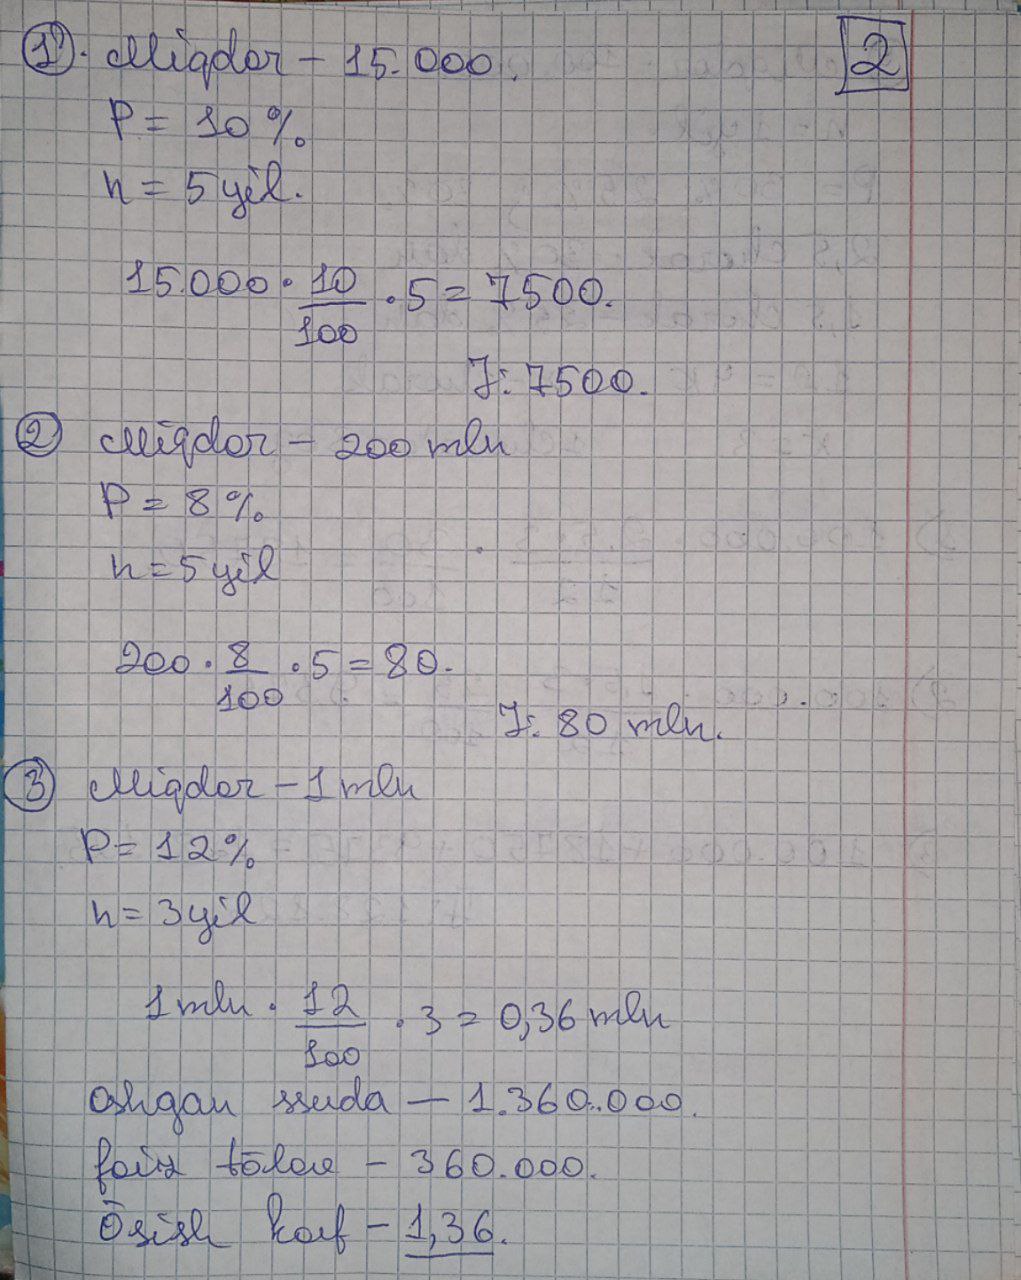 2
1. Miqdor - 15.000.
P = 10 %.
n = 5 yil.
15.000 · 10/100 · 5 = 7500.
J: 7500.
2 Miqdor - 200 mln
P = 8 %.
n = 5 yil
200 · 8/100 · 5 = 80.
J: 80 mln.
3 Miqdor - 1 mln
P = 12 %
n = 3 yil
1 mln · 12/100 · 3 = 0,36 mln
Oshgan ssuda — 1.360.000.
foiz to'lov - 360.000.
Ōsish koef - 1,36.